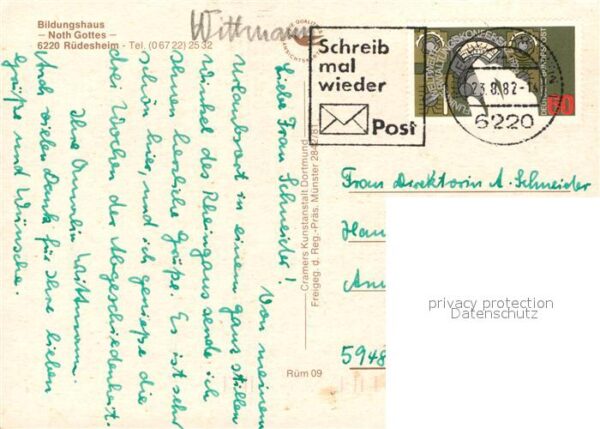 Bildungshaus
— Noth Gottes —
6220 Rüdesheim - Tel. (0 67 22) 25 32
Wittmann
Schreib
mal
wieder
Post
23.8.82
6220
60
Liebe Frau Schneider!
Von meinem
Urlaubsort in einem ganz stillen
Winkel des Rheingaus sende ich
Ihnen herzliche Grüße. Es ist sehr
schön hier, und ich genieße die
drei Wochen der Abgeschiedenheit.
Ihre Annelie Wittmann.
Auch vielen Dank für Ihre lieben
Grüße und Wünsche.
Cramers Kunstanstalt Dortmund
Freigeg. d. Reg.-Präs. Münster 2842/81
Rüm 09
Frau Direktorin A. Schneider
5948
privacy protection
Datenschutz